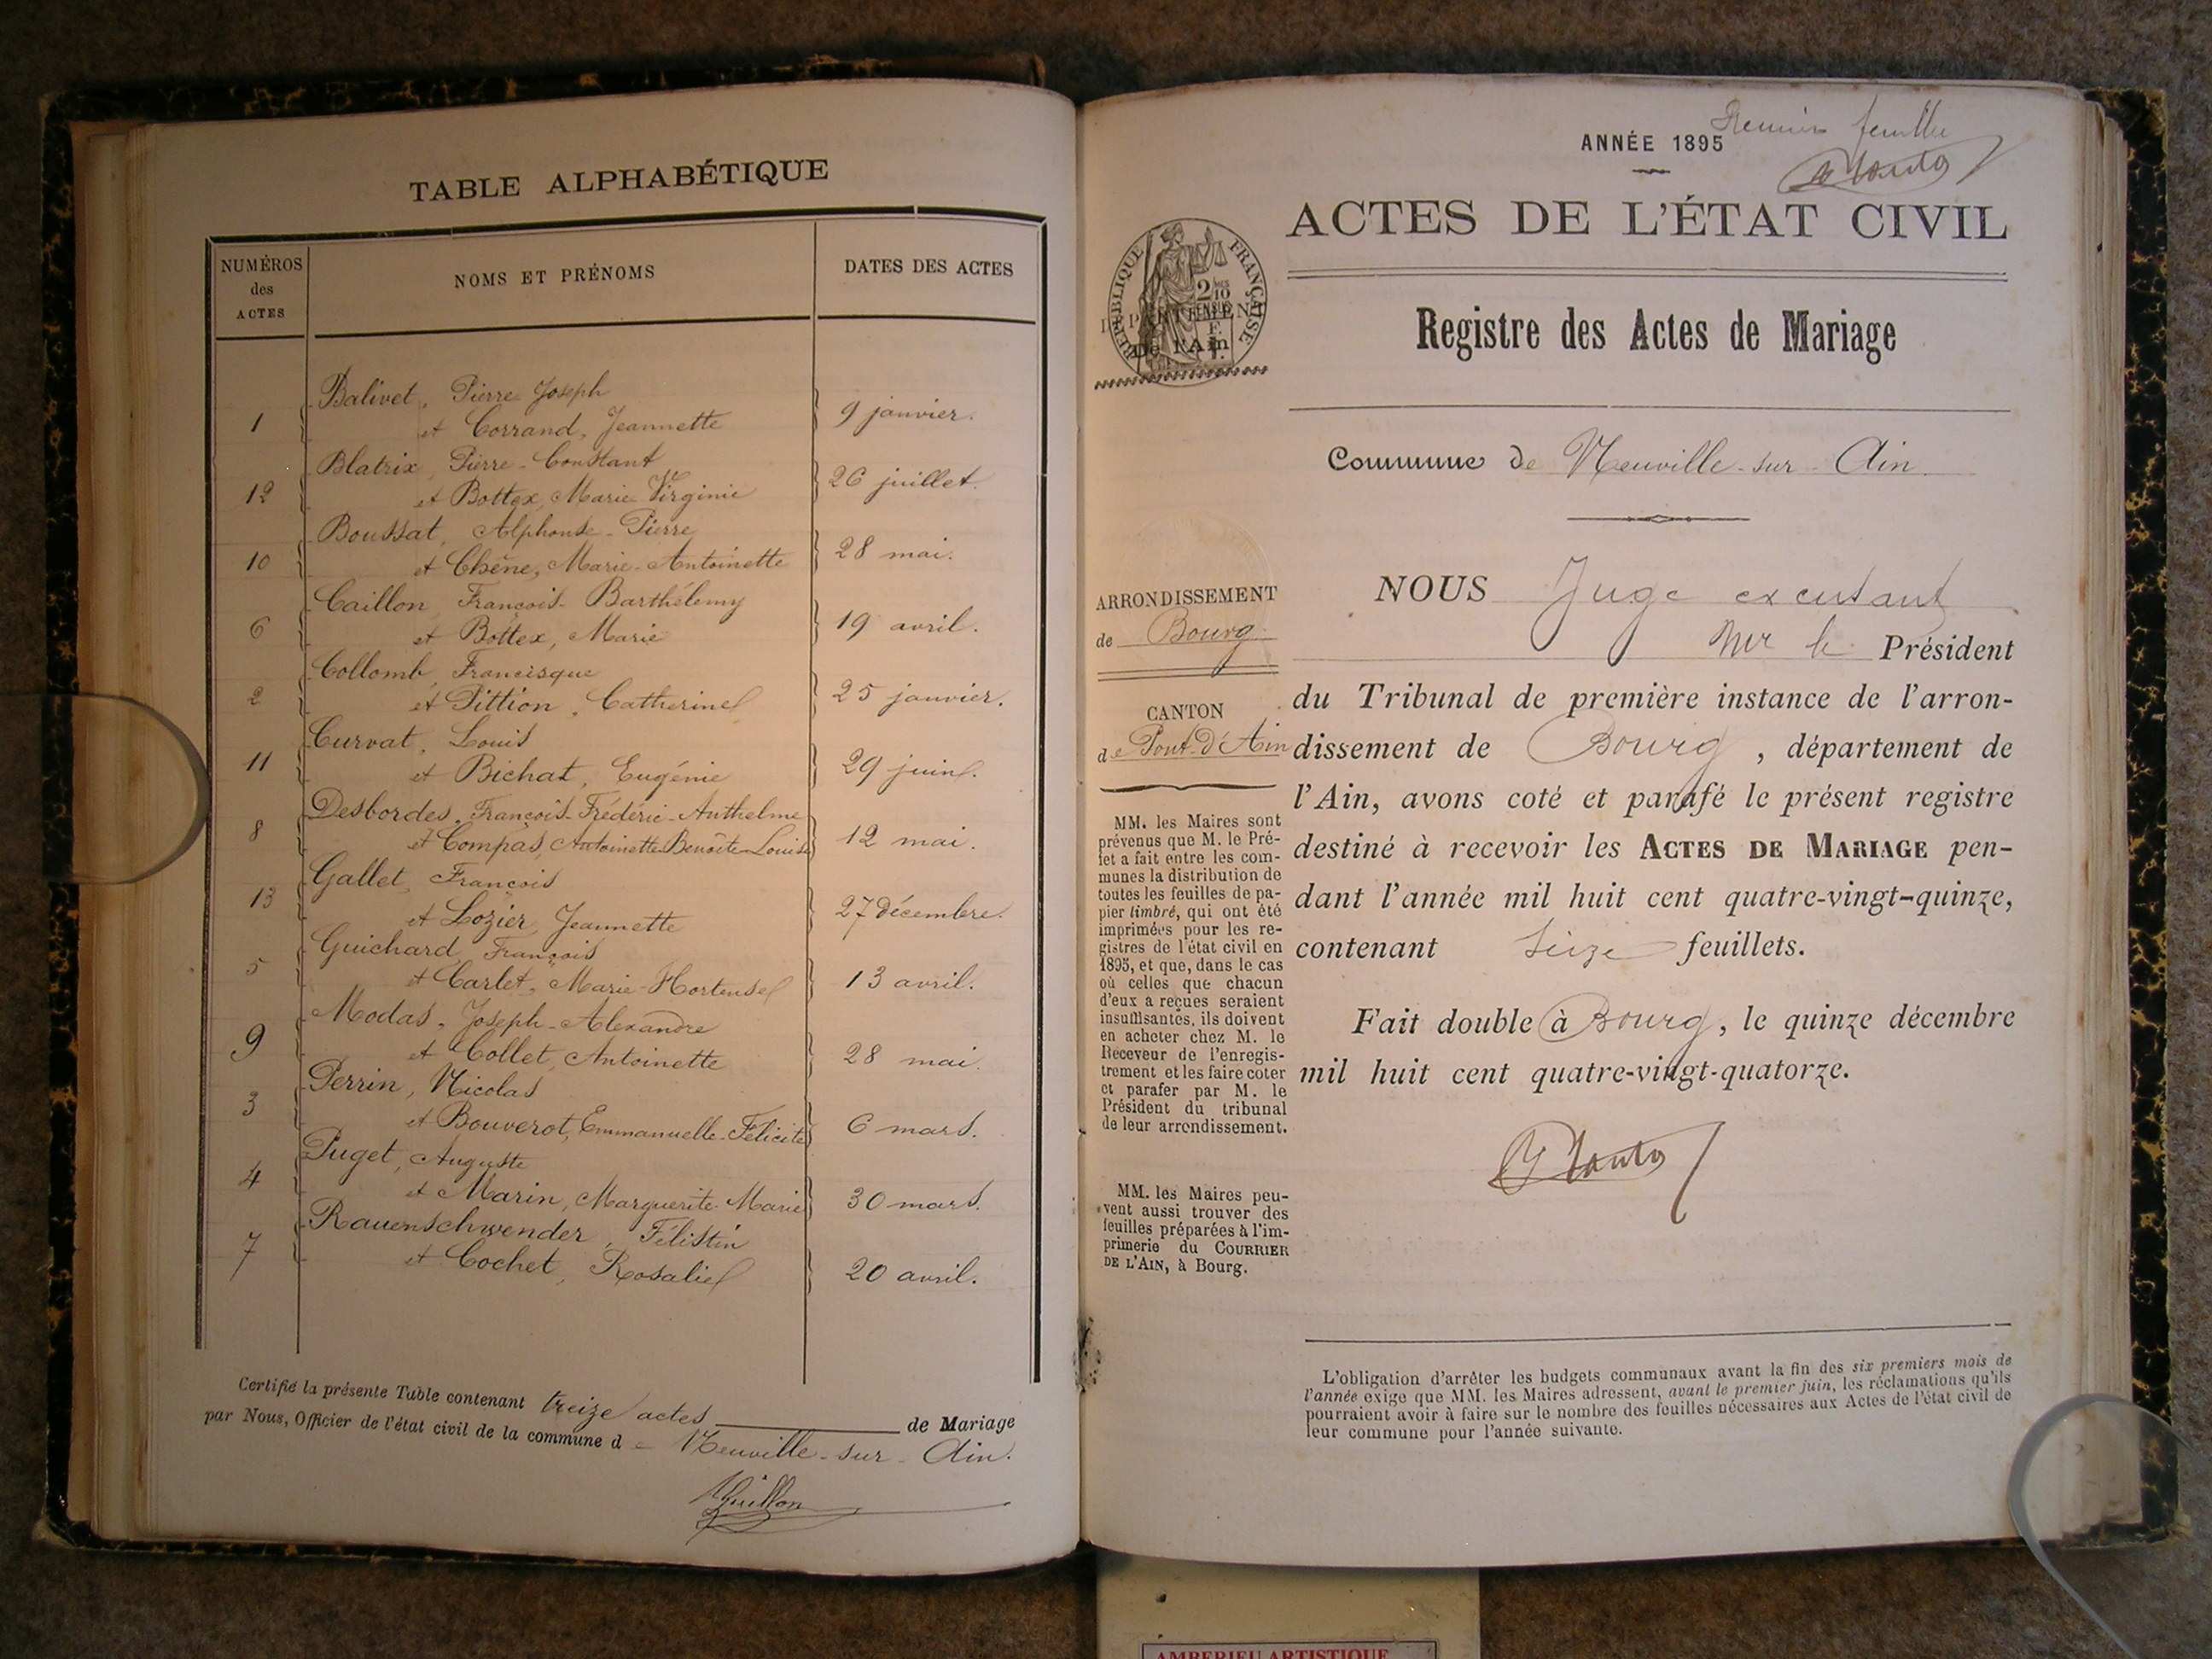 TABLE ALPHABÉTIQUE
NUMÉROS des ACTES
NOMS ET PRÉNOMS
DATES DES ACTES
1 Balivet, Pierre Joseph
et Corrand, Jeannette 9 janvier.
12 Blatrix, Pierre-Constant
et Bottex, Marie Virginie 26 juillet.
10 Boussat, Alphonse-Pierre
et Chêne, Marie-Antoinette 28 mai.
6 Caillon, François-Barthélemy
et Bottex, Marie 19 avril.
2 Collomb, Francisque
et Pittion, Catherine 25 janvier.
11 Curvat, Louis
et Bichat, Eugénie 29 juin.
8 Desbordes, François-Frédéric-Anthelme
et Compas, Antoinette Benoîte Louise 12 mai.
13 Gallet, François
et Lozier, Jeannette 27 décembre.
5 Guichard, François
et Carlet, Marie-Hortense 13 avril.
9 Modas, Joseph-Alexandre
et Collet, Antoinette 28 mai.
3 Perrin, Nicolas
et Bouverot, Emmanuelle-Félicité 6 mars.
4 Puget, Auguste
et Marin, Marguerite-Marie 30 mars.
7 Rauenschwender, Félistin
et Cochet, Rosalie 20 avril.
Certifié la présente Table contenant treize actes de Mariage
par Nous, Officier de l'état civil de la commune de Neuville-sur-Ain.
ANNÉE 1895
Premier feuillet
ACTES DE L'ÉTAT CIVIL
RÉPUBLIQUE FRANÇAISE
De l'Ain
Registre des Actes de Mariage
Commune de Neuville-sur-Ain
ARRONDISSEMENT
de Bourg
CANTON
de Pont-d'Ain
MM. les Maires sont
prévenus que M. le Pré-
fet a fait entre les com-
munes la distribution de
toutes les feuilles de pa-
pier timbré, qui ont été
imprimées pour les re-
gistres de l'état civil en
1895, et que, dans le cas
où celles que chacun
d'eux a reçues seraient
insuffisantes, ils doivent
en acheter chez M. le
Receveur de l'enregis-
trement et les faire coter
et parafer par M. le
Président du tribunal
de leur arrondissement.
MM. les Maires peu-
vent aussi trouver des
feuilles préparées à l'im-
primerie du COURRIER
DE L'AIN, à Bourg.
NOUS Juge
Mr le Président
du Tribunal de première instance de l'arron-
dissement de Bourg, département de
l'Ain, avons coté et parafé le présent registre
destiné à recevoir les ACTES DE MARIAGE pen-
dant l'année mil huit cent quatre-vingt-quinze,
contenant seize feuillets.
Fait double à Bourg, le quinze décembre
mil huit cent quatre-vingt-quatorze.
L'obligation d'arrêter les budgets communaux avant la fin des six premiers mois de
l'année exige que MM. les Maires adressent, avant le premier juin, les réclamations qu'ils
pourraient avoir à faire sur le nombre des feuilles nécessaires aux Actes de l'état civil de
leur commune pour l'année suivante.
AMBERIEU ARTISTIQUE